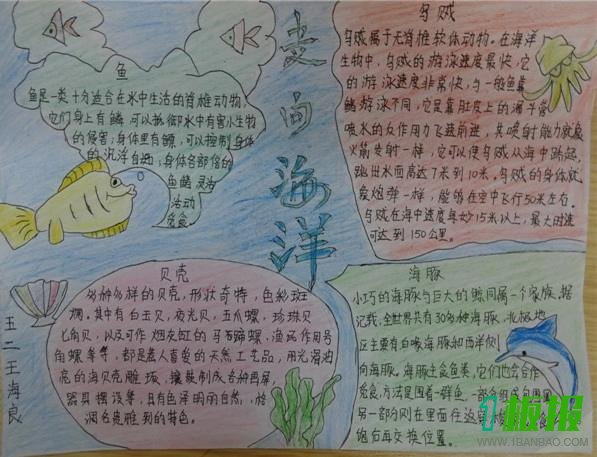 走向海洋
鱼
鱼是一类十分适合在水中生活的脊椎动物,
它们身上有鳞,可以抵御水中有害小生物
的侵害;身体里有鳔,可以控制身体
的沉浮自如;身体各部位的
鱼鳍灵活
活动
乌贼
乌贼属于无脊椎软体动物。在海洋
生物中,乌贼的游泳速度最快,它
的游泳速度非常快,与一般鱼靠
鳍游泳不同,它是靠肚皮上的漏斗管
喷水的反作用力飞速前进,其喷射能力就像
火箭发射一样,它可以使乌贼从海中跃起,
跳出水面高达7米到10米。乌贼的身体就
像炮弹一样,能够在空中飞行50米左右。
乌贼在海中速度每秒15米以上,最大时速
可达到150公里。
贝壳
多种多样的贝壳,形状奇特,色彩斑
斓。其中有白玉贝,夜光贝,五爪螺,珍珠贝
七角贝,以及可作烟灰缸的马蹄蹄螺,渔民作用号
角螺等等,都是惹人喜爱的天然工艺品,用光滑油
亮的海贝壳雕琢,镶嵌制成各种画屏,
器具摆设等,具有色泽明丽自然,
润名贵雅致的特色。
海豚
小巧的海豚与巨大的鲸同属一个家族。据
记载,全世界共有30多种海豚,北极地
区主要有白喙海豚和西洋侧
向海豚。海豚主食鱼类,它们也会合作
觅食,方法是围着一群鱼,一部分
另一部分则在里面
饱后再交换位置。
五二王海良
1板报
WWW.1BANBAO.COM